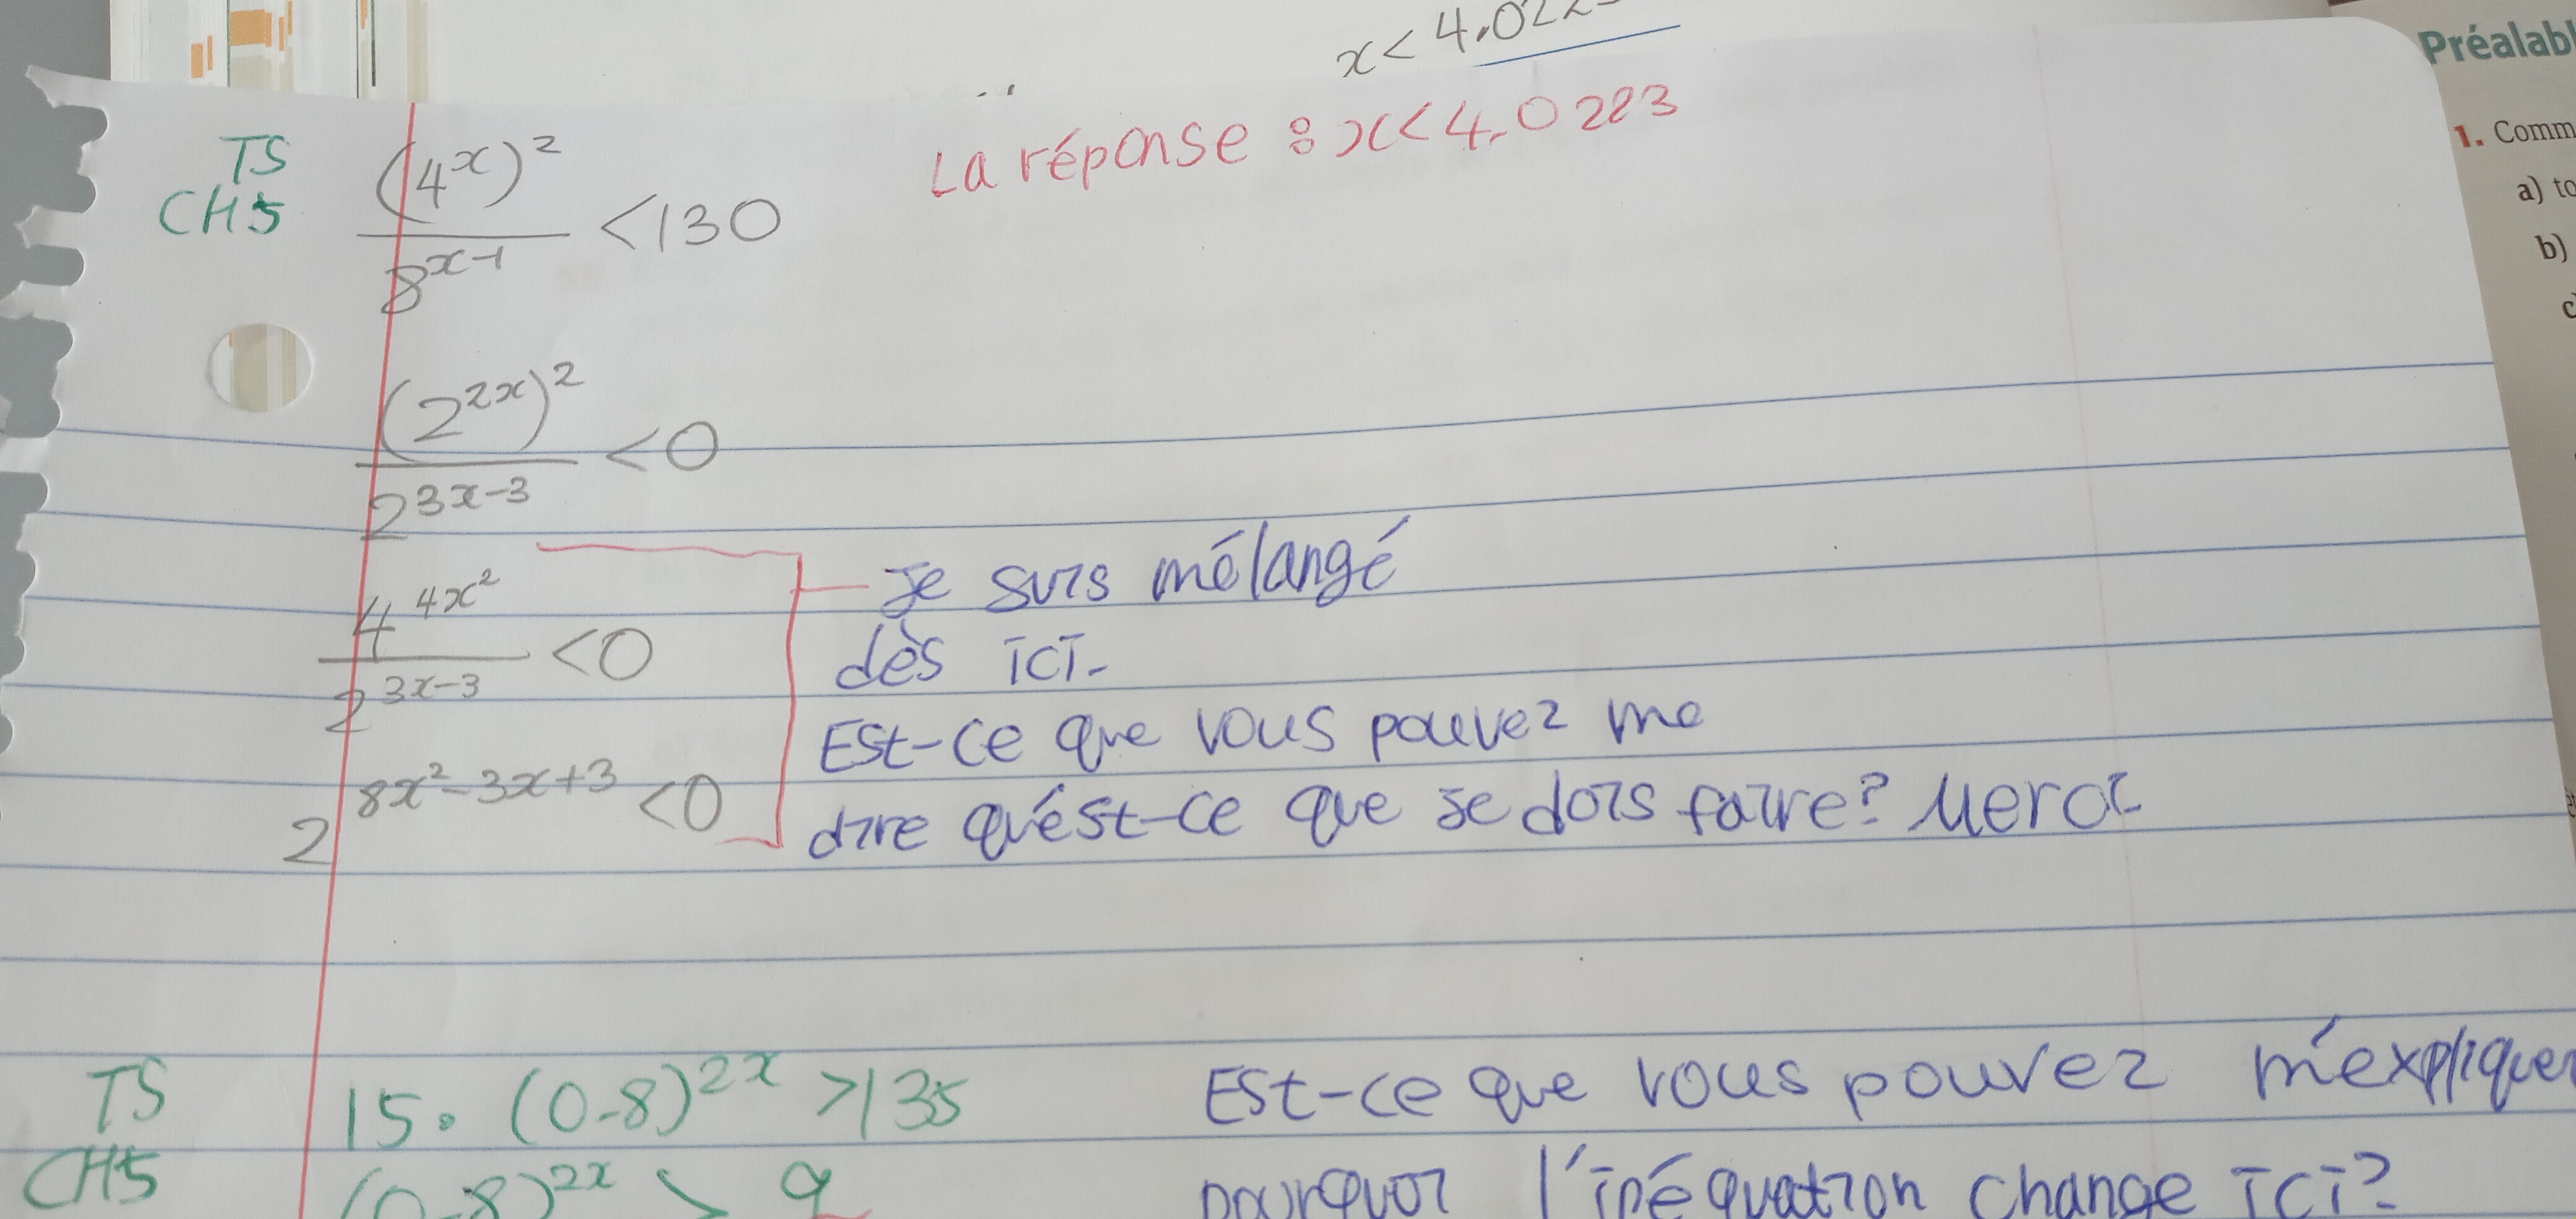 x < 4,022
Préalabl
La réponse : x < 4,0223
1. Comm
a) to
b)
c)
TS
CH5
(4^x)^2 / 8^(x-1) < 130
(2^(2x))^2 / 2^(3x-3) < 0
4^(4x^2) / 2^(3x-3) < 0
2^(8x^2-3x+3) < 0
Je suis mélangé
dès ici.
Est-ce que vous pouvez me
dire qu'est-ce que je dois faire? Merci
TS
CH5
15. (0.8)^(2x) > 135
(0.8)^(2x) > 9
Est-ce que vous pouvez m'expliquer
pourquoi l'inéquation change ici?